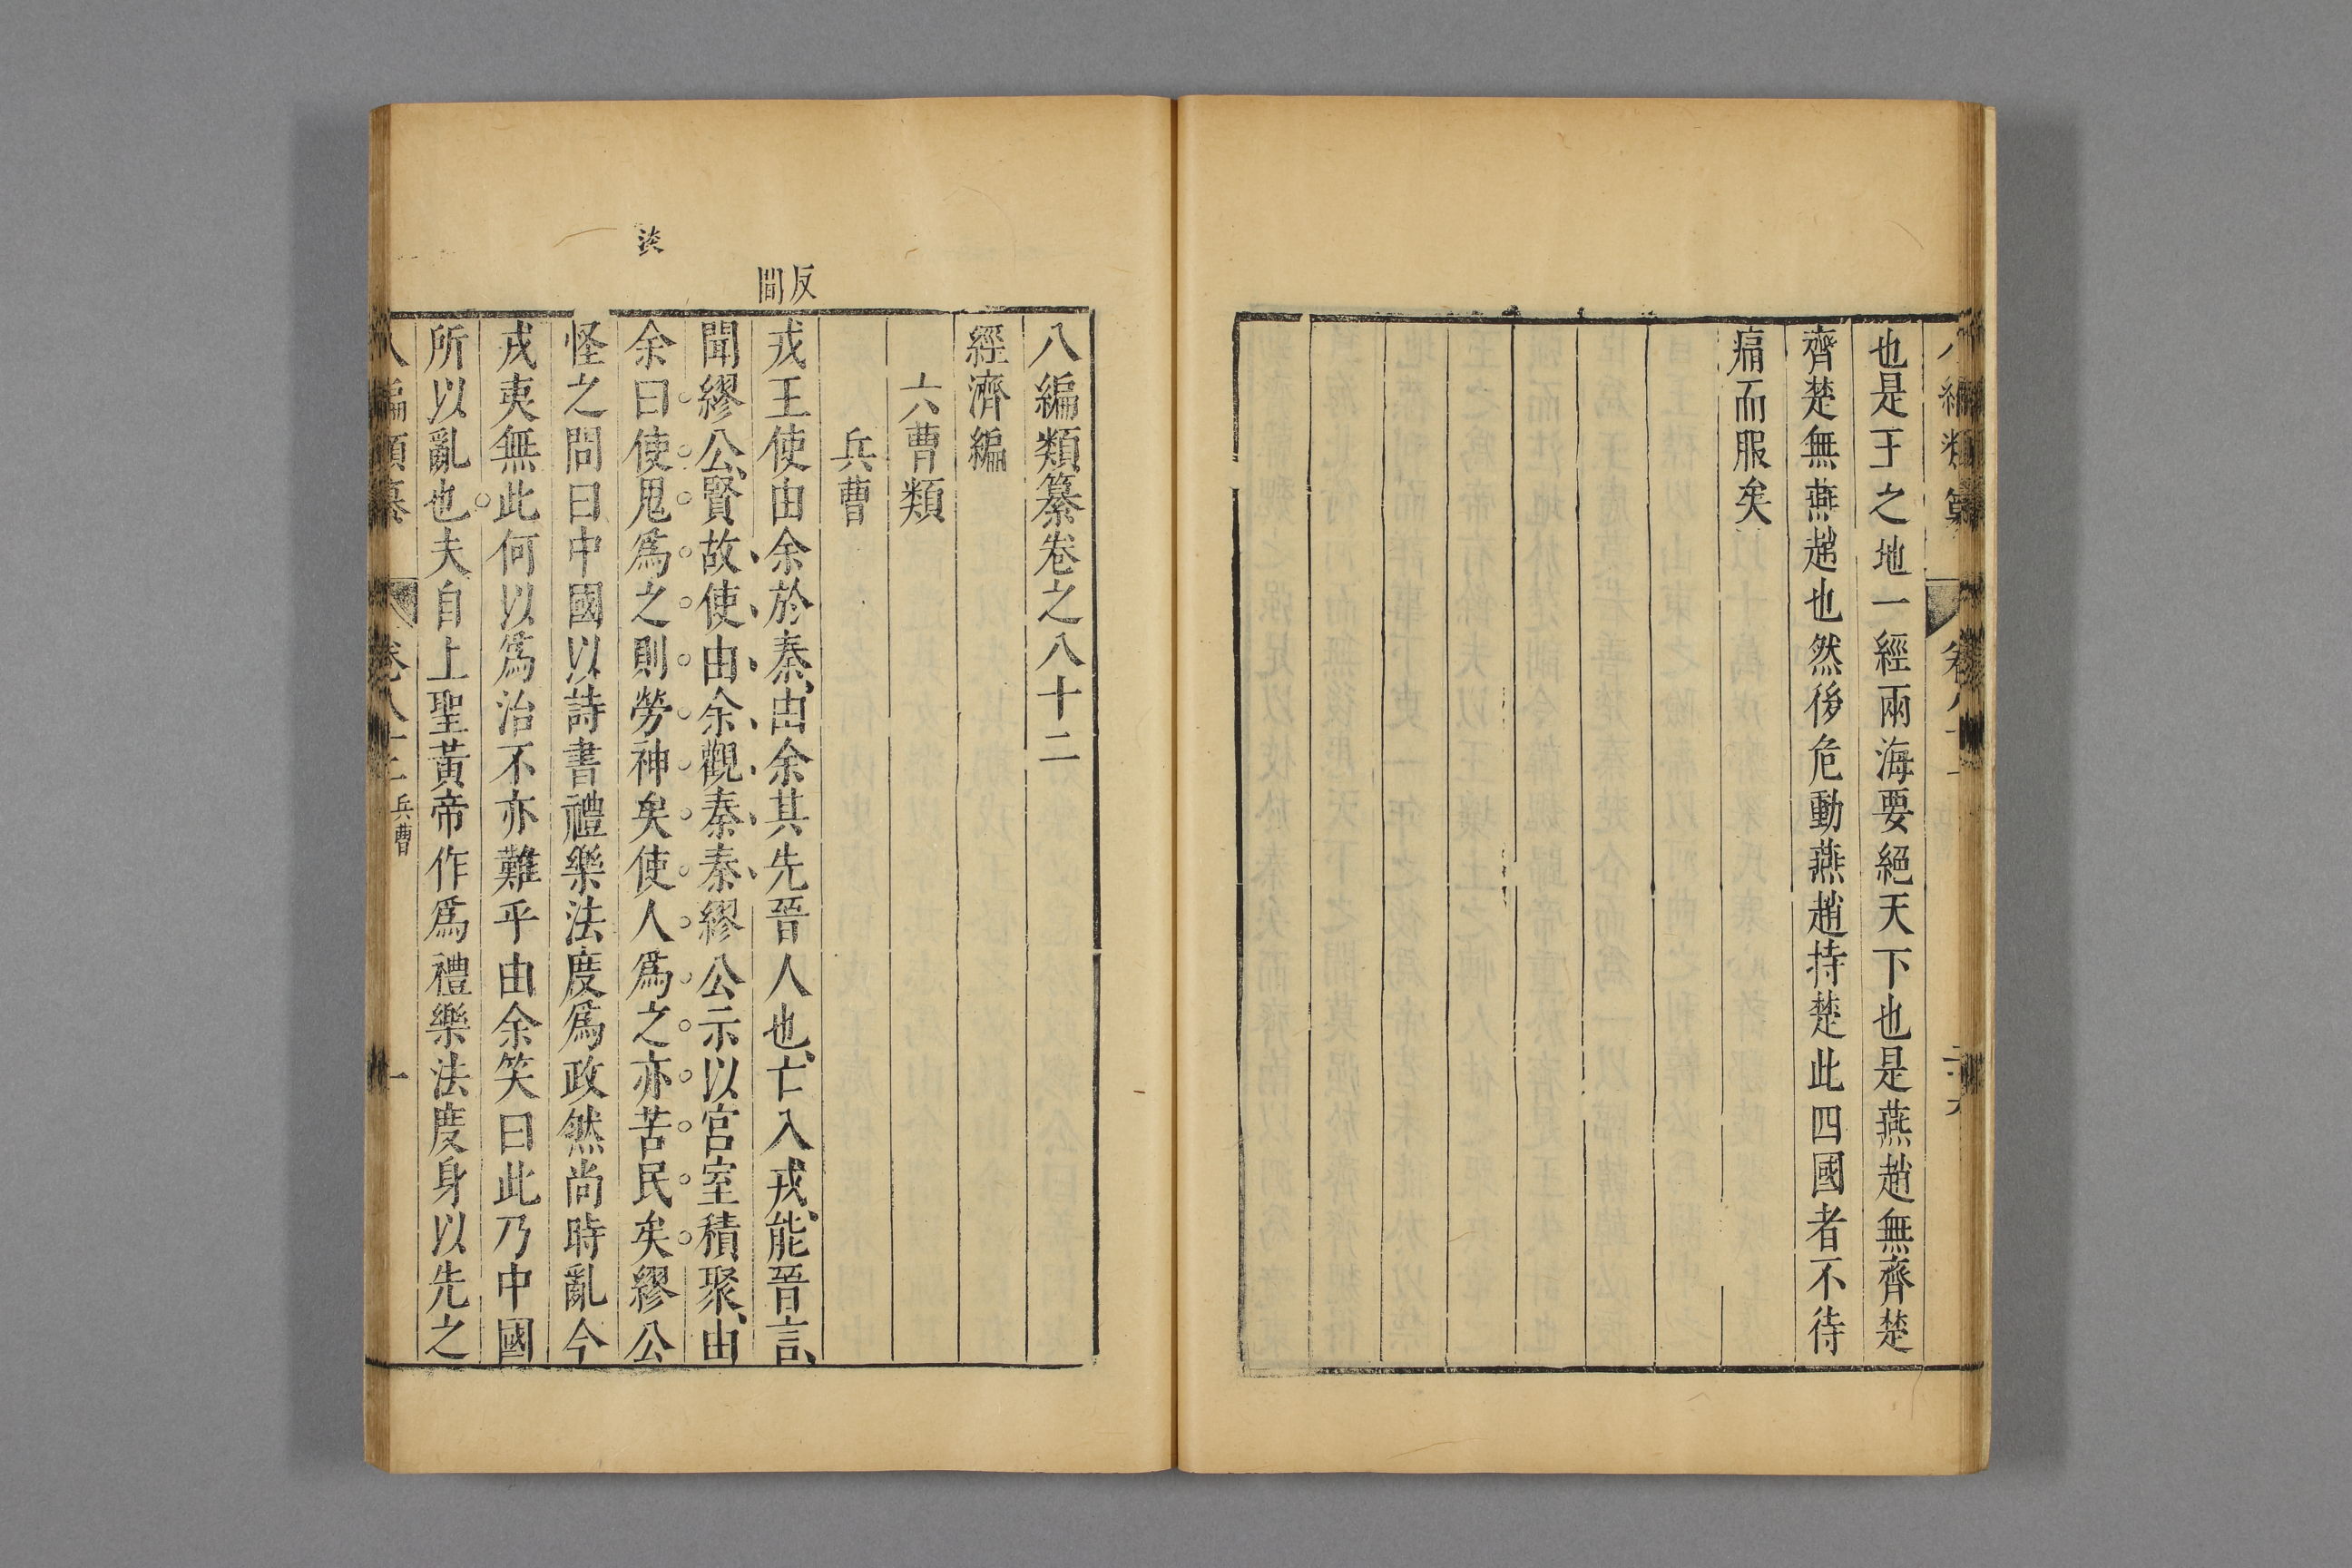 也是王之地一經兩海要絕天下也是燕趙無齊楚
齊楚無燕趙也然後危動燕趙持楚此四國者不待
痛而服矣
八編類纂卷之八十二
經濟編
六曹類
兵曹
反間
戎王使由余於秦由余其先晉人也亡入戎能晉言
聞繆公賢故使由余觀秦秦繆公示以宮室積聚由
淡
余曰使鬼爲之則勞神矣使人爲之亦苦民矣繆公
怪之問曰中國以詩書禮樂法度爲政然尚時亂今
戎夷無此何以爲治不亦難乎由余笑曰此乃中國
所以亂也夫自上聖黃帝作爲禮樂法度身以先之
八編類纂 卷八十二 兵曹 一